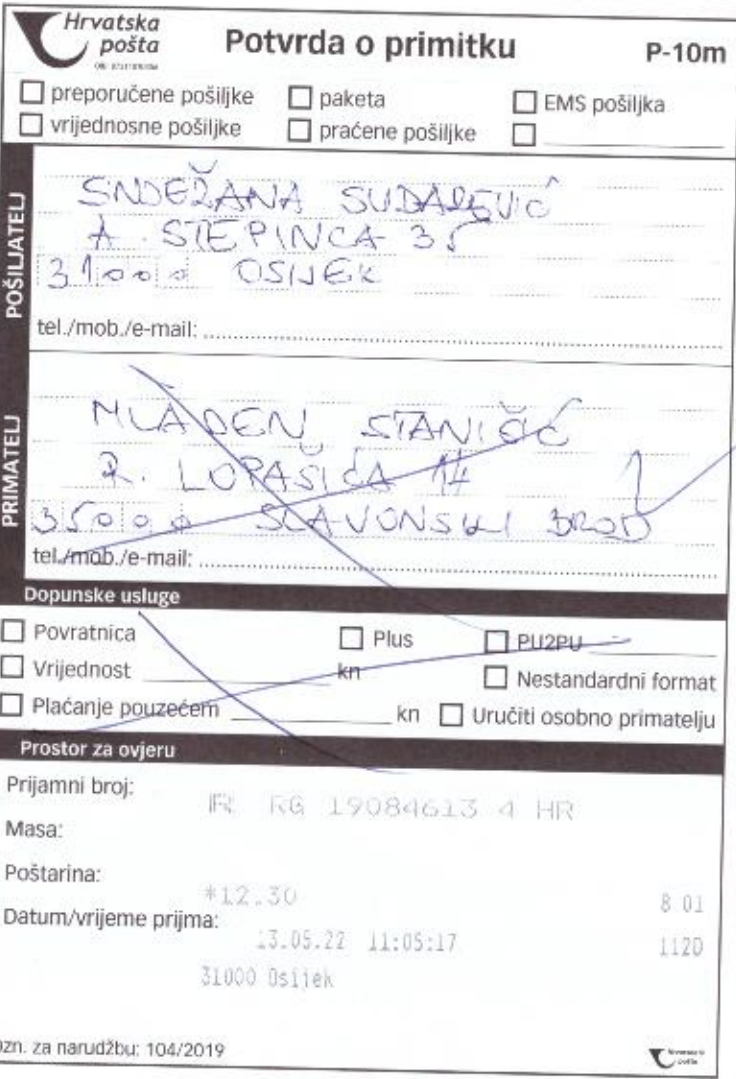 Hrvatska
pošta
Potvrda o primitku
P-10m
preporučene pošiljke
paketa
EMS pošiljka
vrijednosne pošiljke
praćene pošiljke
POŠILJATELJ
SNJEŽANA
A. STEPINCA 35
31000 OSIJEK
tel./mob./e-mail:
PRIMATELJ
MLADEN STANIČIĆ
R. LOPAŠIĆA 14
35000 SLAVONSKI BROD
tel./mob./e-mail:
Dopunske usluge
Povratnica
Plus
PU2PU
Vrijednost kn
Nestandardni format
Plaćanje pouzećem kn
Uručiti osobno primatelju
Prostor za ovjeru
Prijamni broj:
R RG 19084613 4 HR
Masa:
Poštarina:
*12.30
8 01
Datum/vrijeme prijma:
13.05.22 11:05:17
1120
31000 Osijek
Ozn. za narudžbu: 104/2019
Hrvatska
pošta